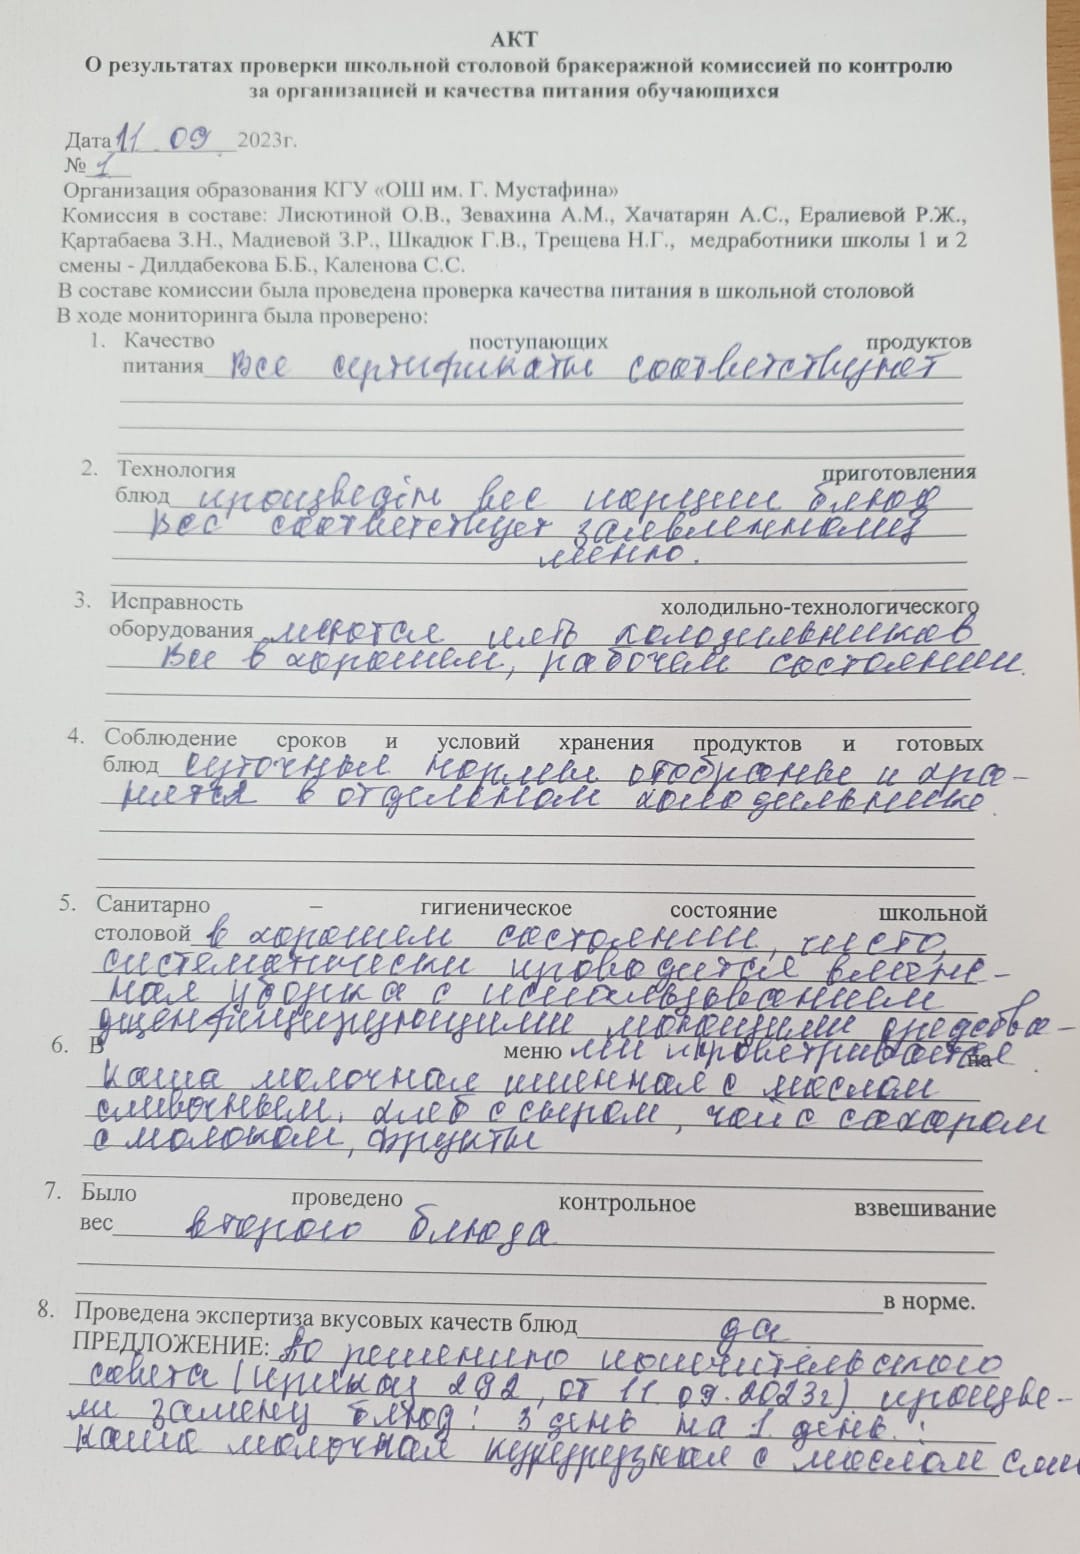 АКТ
О результатах проверки школьной столовой бракеражной комиссией по контролю
за организацией и качества питания обучающихся
Дата 11 . 09 . 2023г.
№ 1
Организация образования КГУ «ОШ им. Г. Мустафина»
Комиссия в составе: Лисютиной О.В., Зевахина А.М., Хачатарян А.С., Ералиевой Р.Ж.,
Қартабаева З.Н., Мадиевой З.Р., Шкадюк Г.В., Трещева Н.Г., медработники школы 1 и 2
смены - Дилдабекова Б.Б., Каленова С.С.
В составе комиссии была проведена проверка качества питания в школьной столовой
В ходе мониторинга была проверено:
1. Качество поступающих продуктов
питания Все сертификаты соответствуют
2. Технология приготовления
блюд произведён вес порции блюд
Вес соответствует заявленному
меню.
3. Исправность холодильно-технологического
оборудования имеются пять холодильников
Все в хорошем, рабочем состоянии.
4. Соблюдение сроков и условий хранения продуктов и готовых
блюд суточные нормы отобранье и хра-
нятся в отдельном холодильнике.
5. Санитарно – гигиеническое состояние школьной
столовой в хорошем состоянии, чисто,
систематически проводится влаж-
ная уборка с использованием
дезенфицирующими моющими средства-
6. В меню ми проветривается на
каша молочная пшенная с маслом
сливочным, хлеб с сыром, чай с сахаром
с молоком, фрукты
7. Было проведено контрольное взвешивание
вес второго блюда
в норме.
8. Проведена экспертиза вкусовых качеств блюд да
ПРЕДЛОЖЕНИЕ: По решению попечительского
совета (приказ 292, от 11.09.2023г) произве-
ли замену блюд: 3 день на 1 день:
каша молочная кукурузная с маслом сли